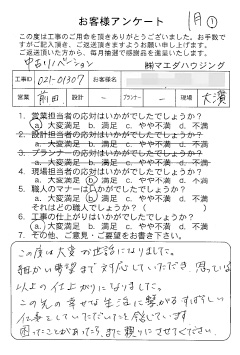 お客様アンケート 1月①
この度は工事のご用命を頂きありがとうございました。お手数で
すがご記入頂き、ご返送頂きますようお願い申し上げます。
ご返送頂いた方から、毎月抽選で感謝品を進呈いたします。
中古リノベーション ㈱マエダハウジング
工事ID 021-01307 お客様名
営業 前田 設計 − プランナー − 現場 大濱
1. 営業担当者の応対はいかがでしたでしょうか?
a. 大変満足 b. 満足 c. やや不満 d. 不満
2. 設計担当者の応対はいかがでしたでしょうか?
a. 大変満足 b. 満足 c. やや不満 d. 不満
3. プランナーの応対はいかがでしたでしょうか?
a. 大変満足 b. 満足 c. やや不満 d. 不満
4. 現場担当者の応対はいかがでしたでしょうか?
a. 大変満足 b. 満足 c. やや不満 d. 不満
5. 職人のマナーはいかがでしたでしょうか?
a. 大変満足 b. 満足 c. やや不満 d. 不満
それはどの職人でしょうか? ( )
6. 工事の仕上がりはいかがでしたでしょうか?
a. 大変満足 b. 満足 c. やや不満 d. 不満
7. その他、ご意見・ご要望をお書き下さい。
この度は大変お世話になりました。
細かい要望まで対応していただき、思っている
以上の仕上がりになりました。
この先の幸せな生活に繋がるすばらしい
仕事としていただいたと感じています
困ったことがあったら、また頼りにさせてください。